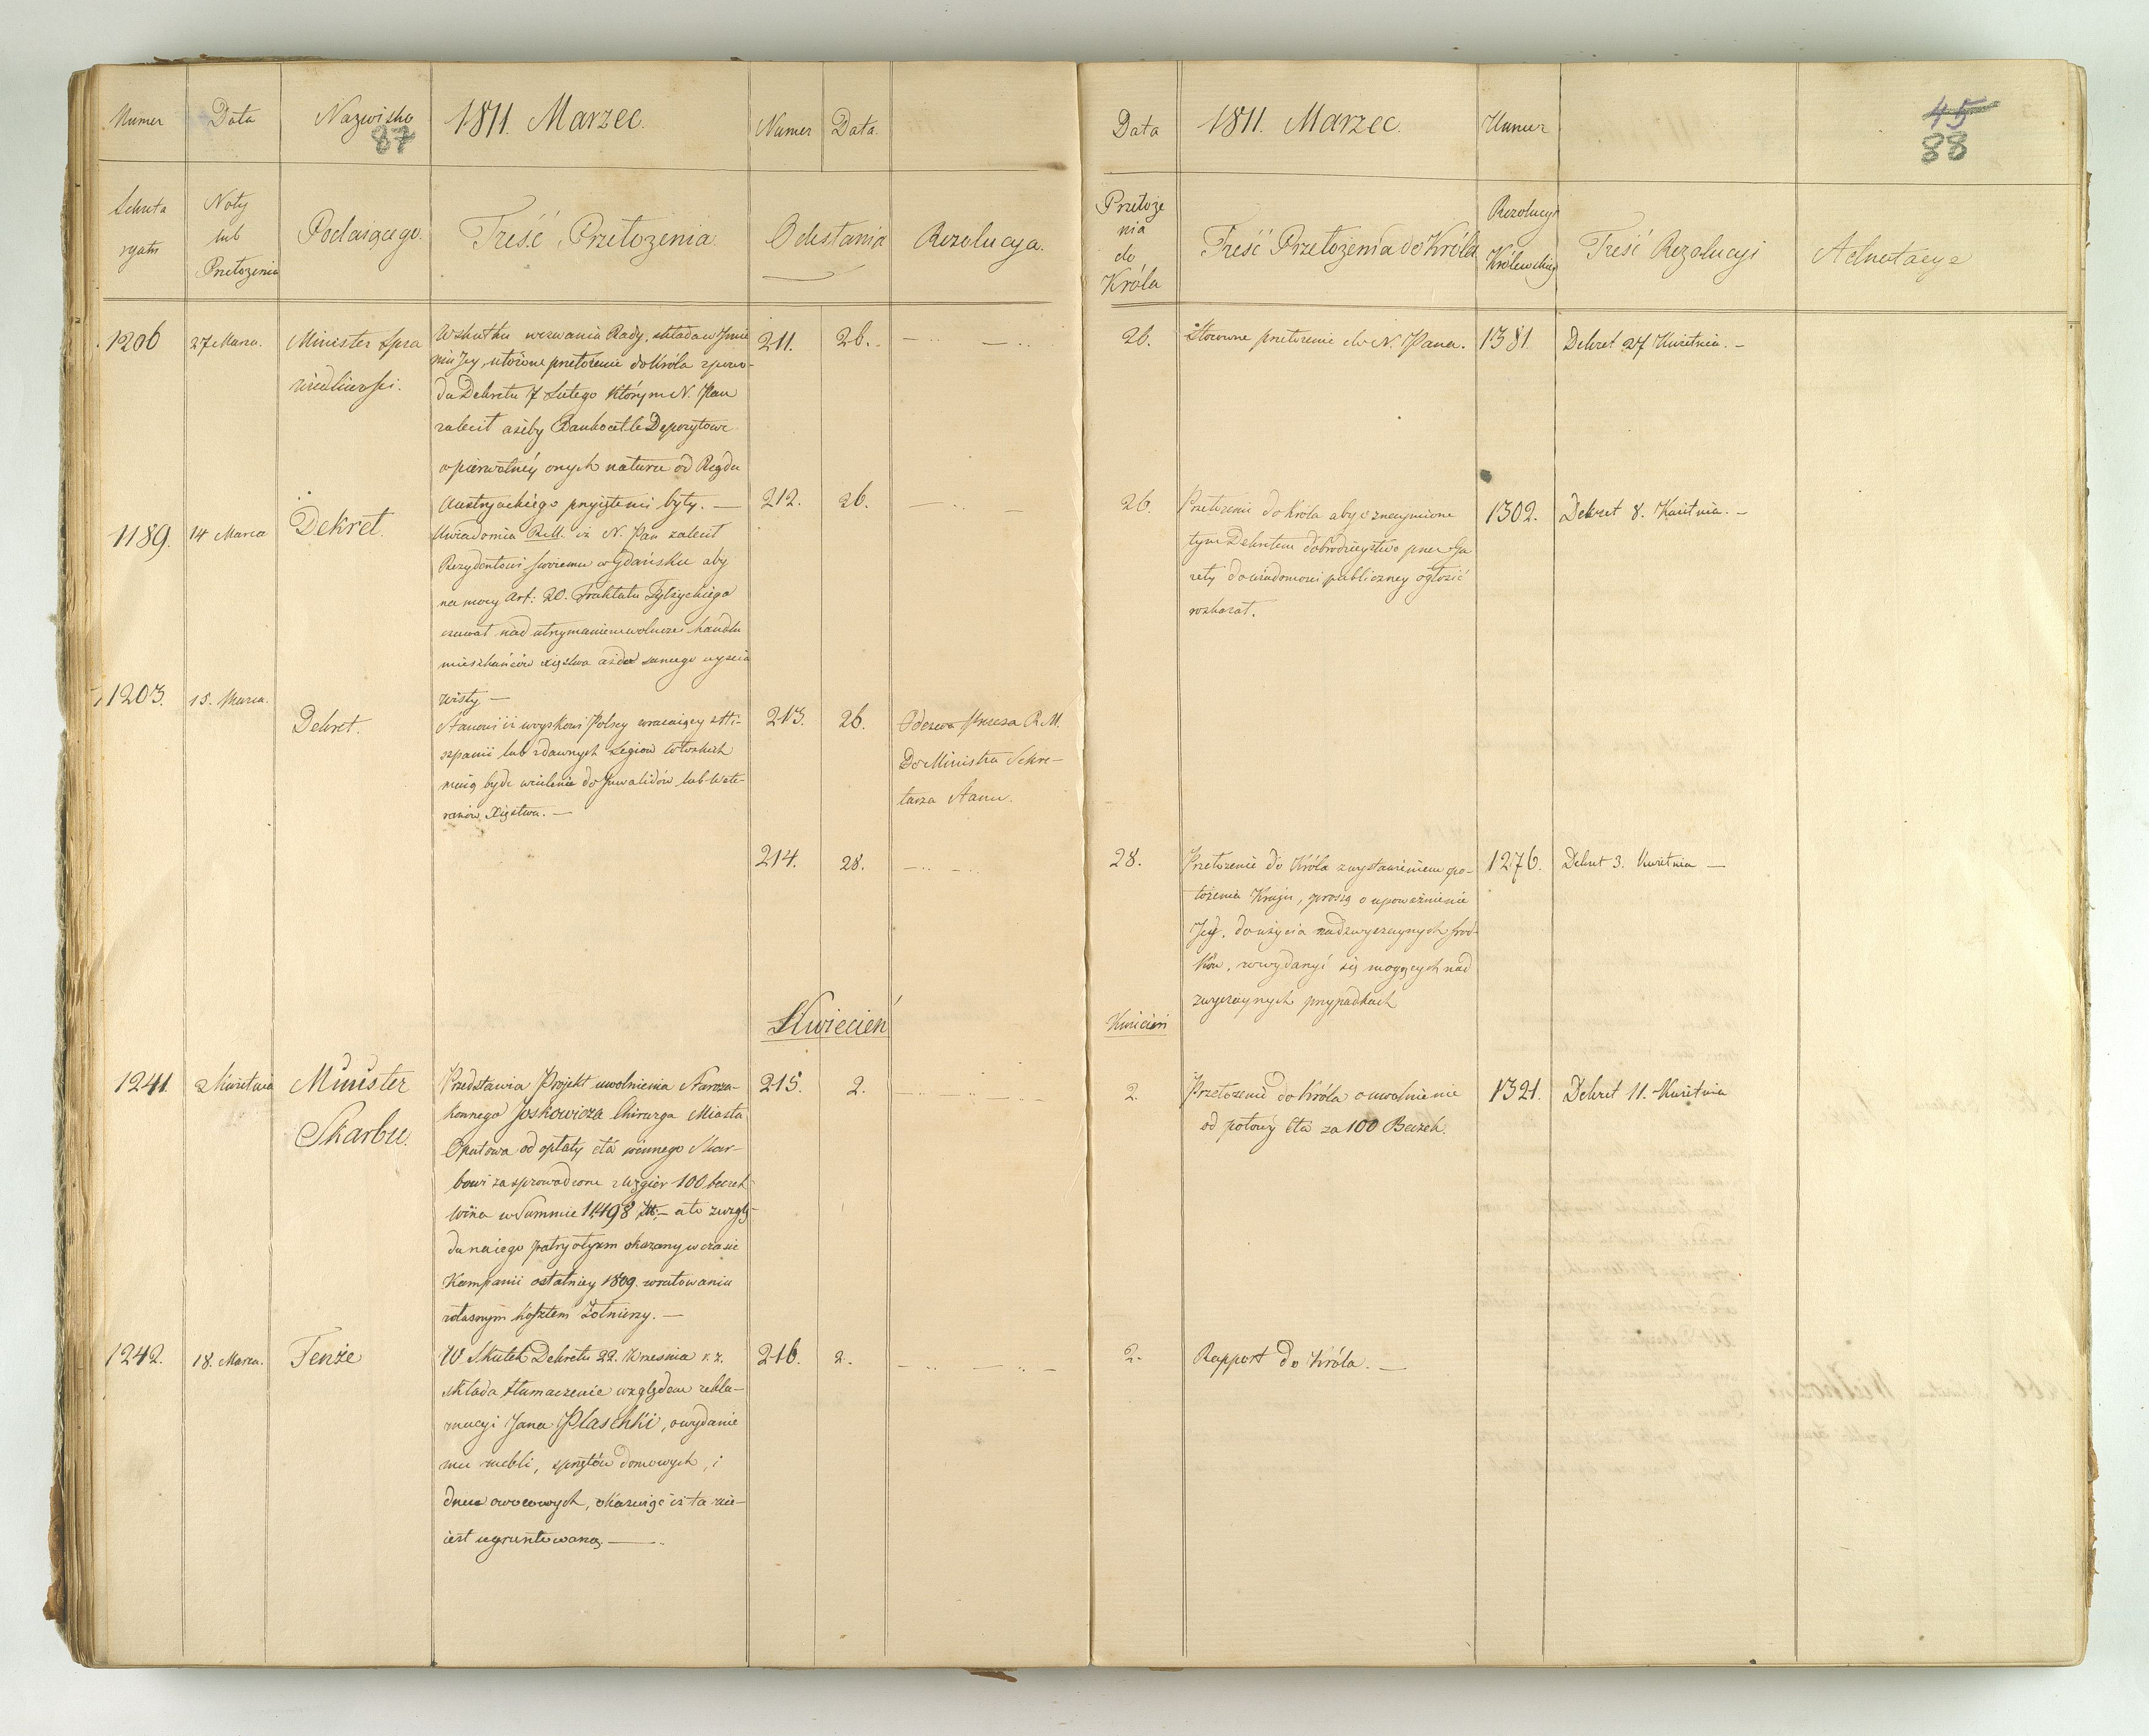 Numer
Data
Nazwisko
87
1811. Marzec.
Numer
Data
Sekreta
ryatu
Noty
lub
Przełożenia
Podaiącego.
Treść Przełożenia
Odesłania
Rezolucya.
1206
27 Marca.
Minister Spra
wiedliwości.
W skutku wezwania Rady, składa w Imie
niu Jey, ułożone przełożenie do Króla z powo-
du Dekretu 7 Lutego którym N. Pan
zalecił ażeby Bankocetle Depozytowe
o pierwotnéy onych naturze od Rządu
Austryackiego przyięte były. —
211.
26.
1189.
14 Marca
Dekret.
Uwiadomia R.M. iż N. Pan zalecił
Rezydentowi swoiemu w Gdańsku aby
na mocy Art: 20. Traktatu Tylzyckiego
czuwał nad utrzymaniem wolności handlu
mieszkańców Xięstwa aż do samego uyścia
Wisły —
212.
26.
1203.
15. Marca.
Dekret.
Stanowi iż woyskowi Polscy wracaiący z Hi-
szpanii lub z dawnych Legiow Włoskich
maią bydź wcieleni do Inwalidów lub Wete-
ranów Xięstwa. —
213.
26.
Odezwa Prezesa R.M.
Do Ministra Sekre-
tarza Stanu.
214.
28.
Kwiecień
1241.
2 Kwietnia
Minister
Skarbu.
Przedstawia Projekt uwolnienia Staroza-
konnego Joskowicza Chirurga Miasta
Opatowa od opłaty cła winnego Skar-
bowi za sprowadzone z Węgier 100 beczek
Wina w Summie 11,498 — a to z wzglę-
du na iego patryotyzm okazany w czasie
Kampanii ostatniey 1809. w ratowaniu
własnym kosztem Żołnierzy. —
215.
2.
1242.
18. Marca.
Tenże
W Skutek Dekretu 22. Września r. z.
składa tłumaczenie względem rekla-
macyi Jana Plaschki, o wydanie
mu mebli, sprzętów domowych, i
drzew owocowych, okazuiąc iż ta nie-
iest ugruntowaną —
216.
2.
Data
1811. Marzec.
Numer
45
88
Przełoże
nia
do
Króla
Treść Przełożenia do Króla
Rezolucyi
Królewskiey
Treść Rezolucyi
Adnotacye
26.
Stosowne przełożenie do N. Pana.
1381.
Dekret 27 Kwietnia. —
26.
Przełożenie do Króla aby oznaymione
tym Dekretem dobrodzieystwo przez Ga
zety do wiadomości publiczney ogłosić
rozkazał.
1302.
Dekret 8. Kwietnia. —
28.
Przełożenie do Króla z wystawieniem po-
łożenia Kraju, prosząc o upoważnienie
Jey. do użycia nadzwyczaynych środ-
ków, w wydarzyć się mogących nad
zwyczaynych przypadkach
1276.
Dekret 3. Kwietnia —
Kwiecień
2.
Przełożenie do Króla o uwolnienie
od połowy Cła za 100 Beczek.
1321.
Dekret 11. Kwietnia
2.
Rapport do Króla. —